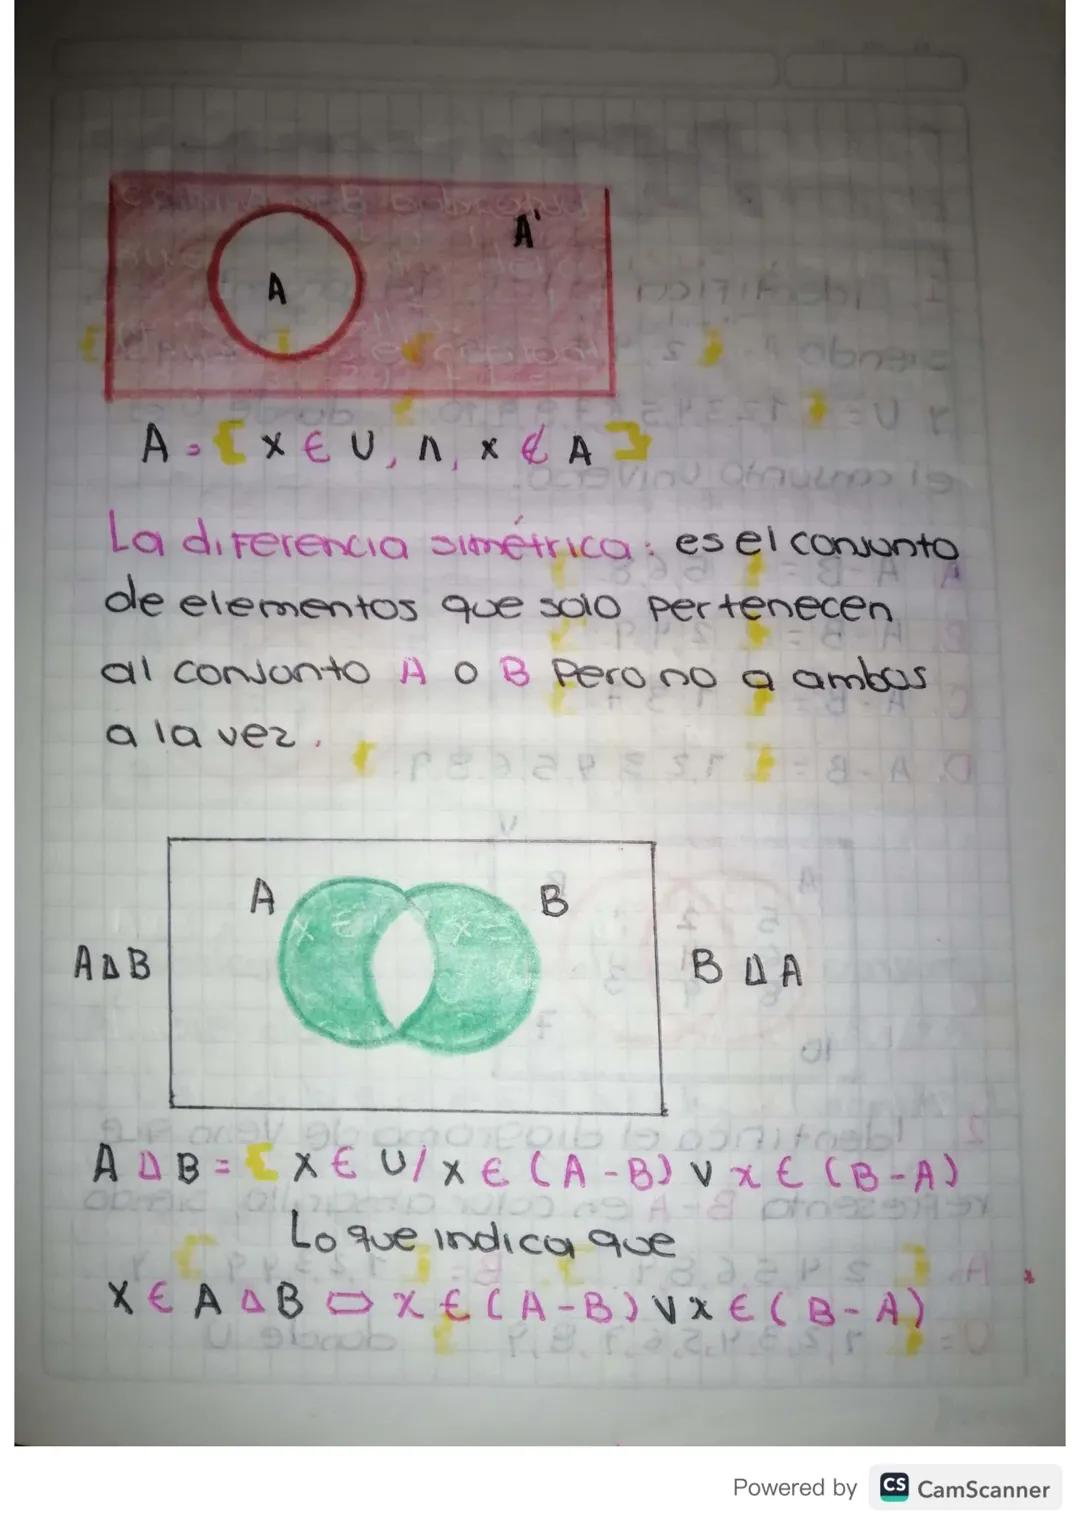 A'
A
A = { x ∈ U, ∧, x ∉ A }
La diferencia simétrica: es el conjunto
de elementos que solo pertenecen
al conjunto A o B Pero no a ambos
a la vez.
A B
A Δ B B Δ A
A Δ B = { x ∈ U / x ∈ (A - B) ∨ x ∈ (B - A)
Lo que indica que
x ∈ A Δ B ⇔ x ∈ (A - B) ∨ x ∈ (B - A)
Powered by CS CamScanner